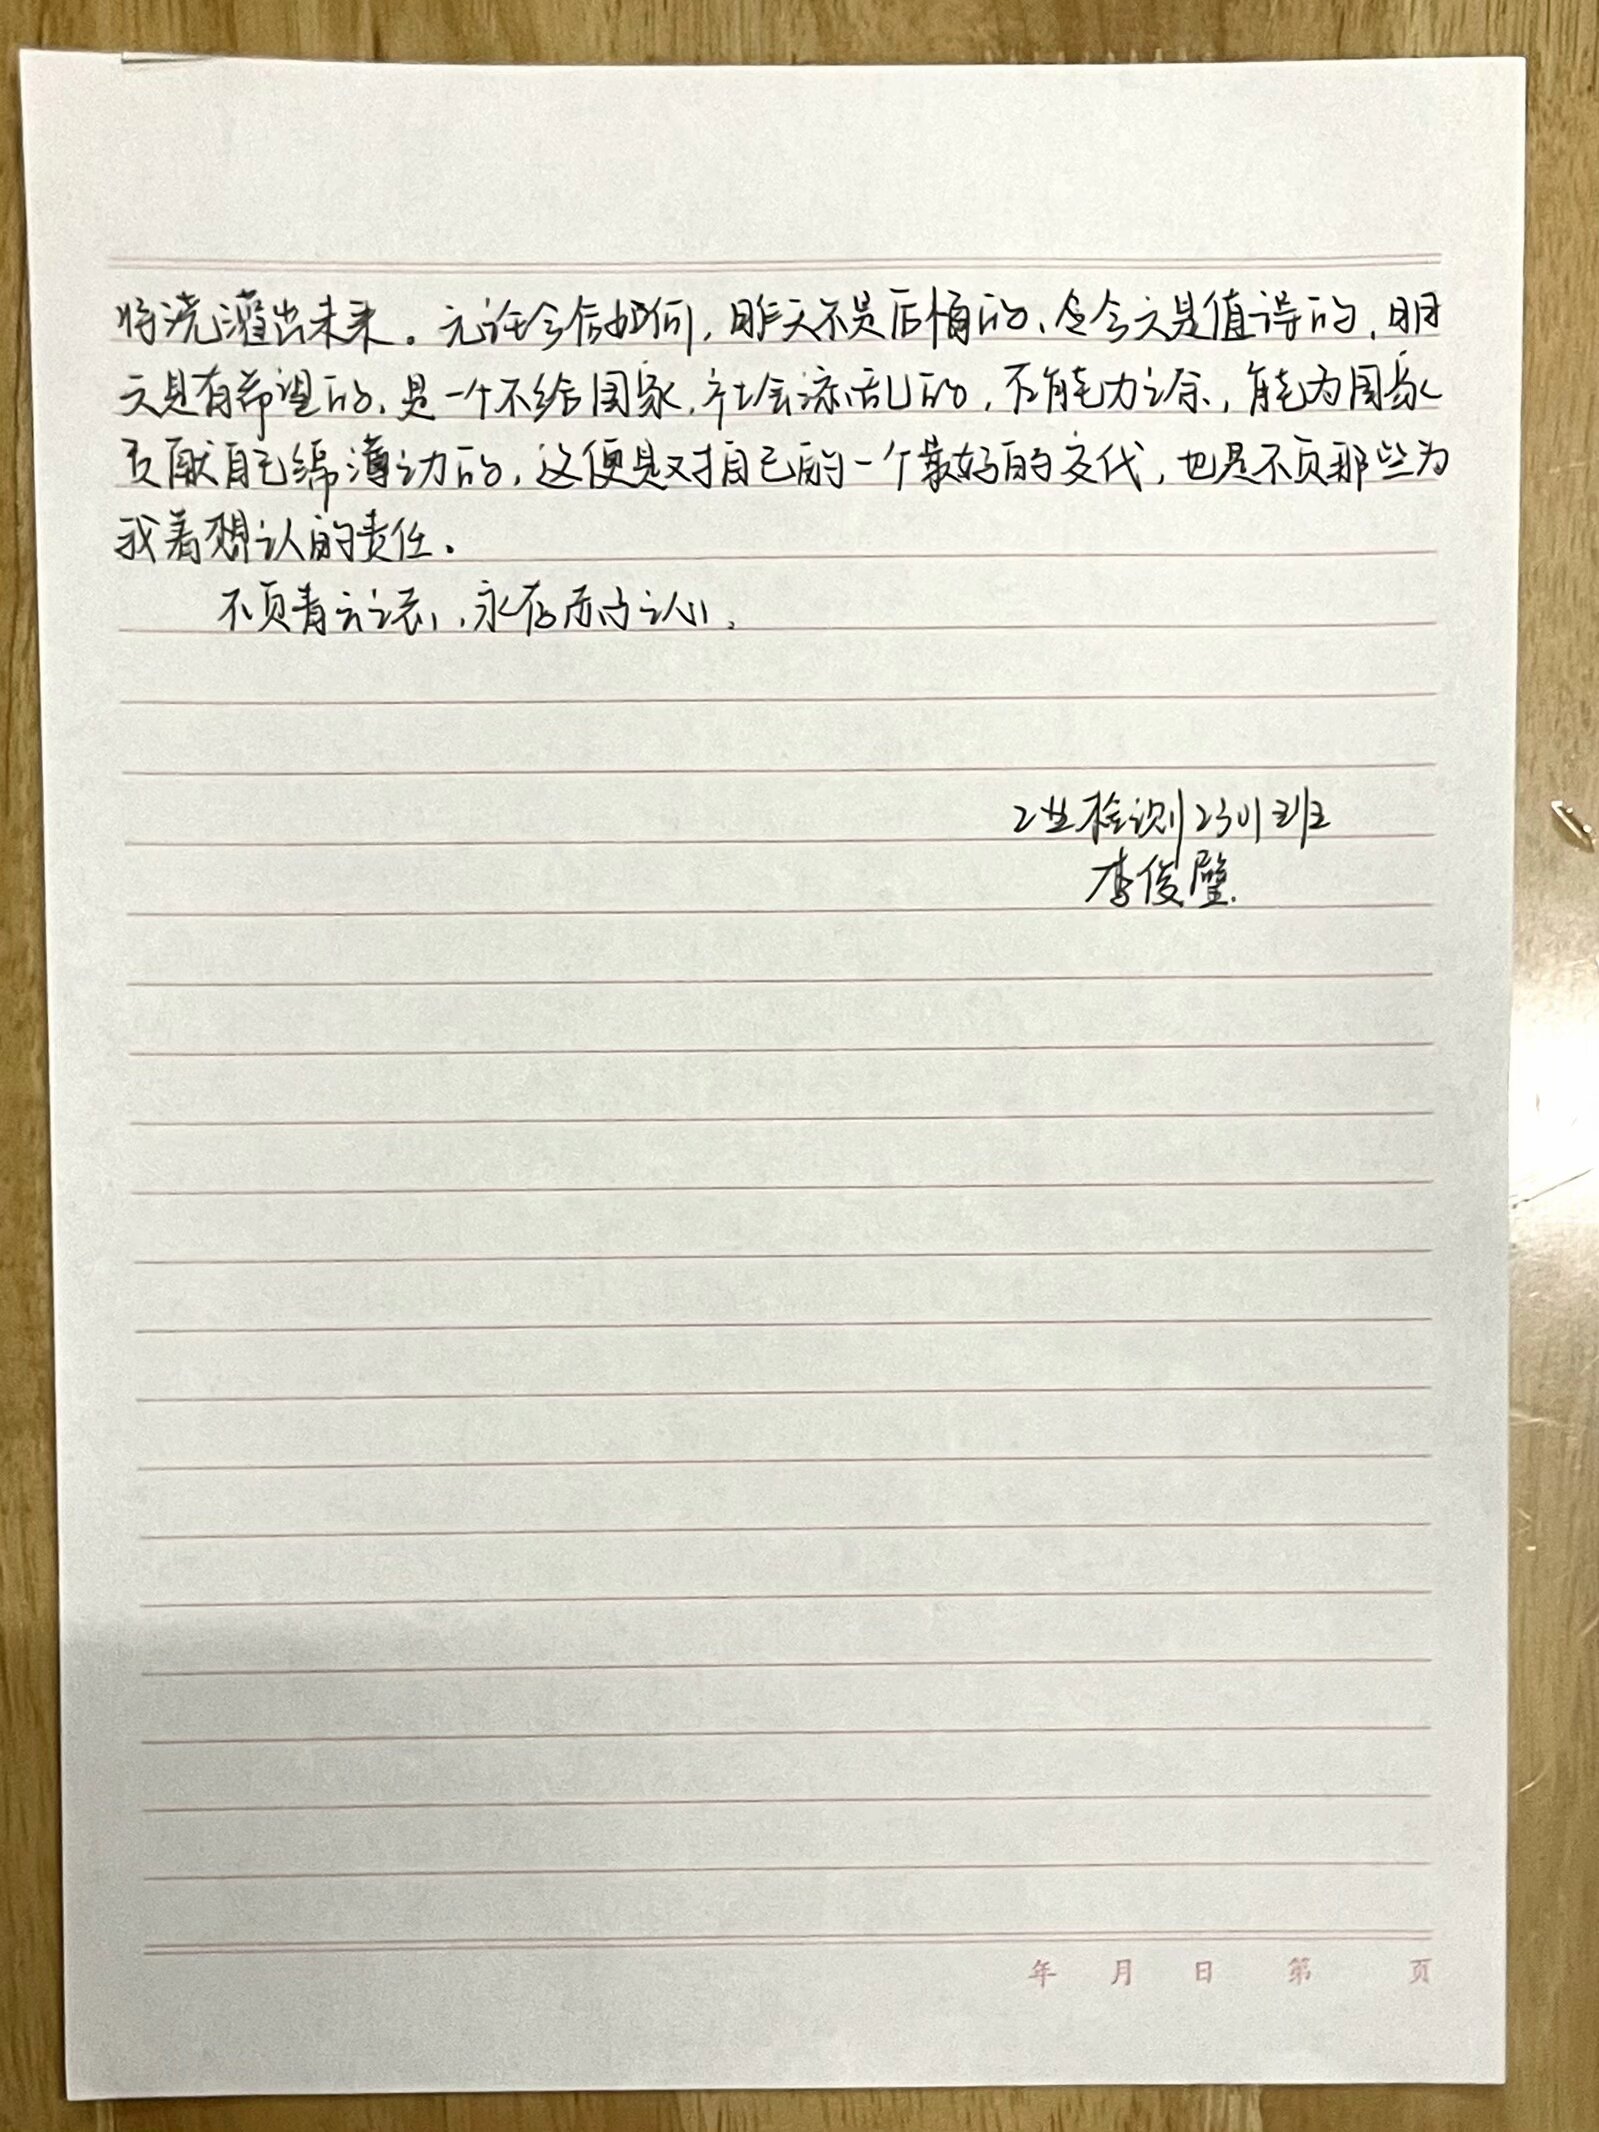 将浇灌出未来。无论今后如何，昨天不是后悔的、今天是值得的，明
天是有希望的、是一个不给国家，社会添乱的，有能力之余，能为国家
贡献自己绵薄之力的，这便是对自己的一个最好的交代，也是不负那些为
我着想认的责任。
不负青云之志，永存历的认心。
工业检测2301班
李俊璧
年 月 日 第 页